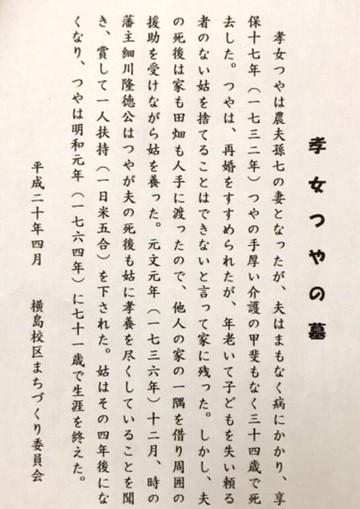 孝女つやの墓
孝女つやは農夫孫七の妻となったが、夫はまもなく病にかかり、享
保十七年（一七三二年）つやの手厚い介護の甲斐もなく三十四歳で死
去した。つやは、再婚をすすめられたが、年老いて子どもを失い頼る
者のない姑を捨てることはできないと言って家に残った。しかし、夫
の死後は家も田畑も人手に渡ったので、他人の家の一隅を借り周囲の
援助を受けながら姑を養った。元文元年（一七三六年）十二月、時の
藩主細川隆徳公はつやが夫の死後も姑に孝養を尽くしていることを聞
き、賞して一人扶持（一日米五合）を下された。姑はその四年後に亡
くなり、つやは明和元年（一七六四年）に七十一歳で生涯を終えた。
平成二十年四月　横島校区まちづくり委員会